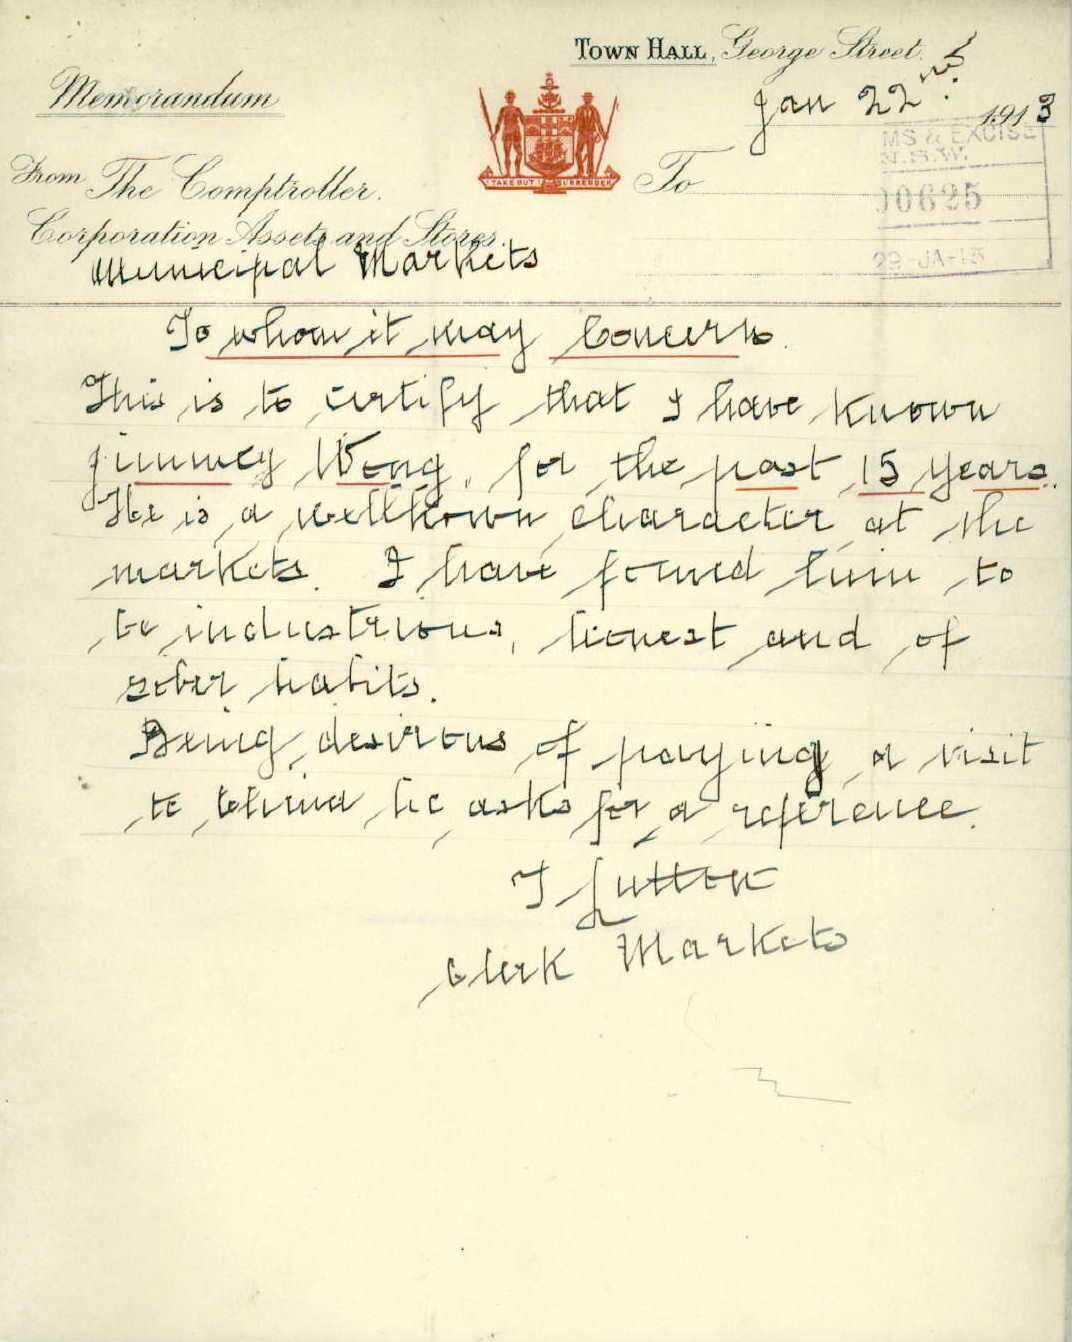 Town Hall, George Street.
Memorandum
Jan 22nd 1913
From The Comptroller.
To
MS & EXCISE
N.S.W.
00625
29-JA-13
Corporation Assets and Stores
Municipal Markets
To whom it may Concern.
This is to certify that I have known
Jimmey Wong, for the past 15 years.
He is a wellknown character at the
markets. I have found him to
be industrious, honest and of
sober habits.
Being desirous of paying a visit
to China he asks for a reference.
T Sutton
Clerk Markets